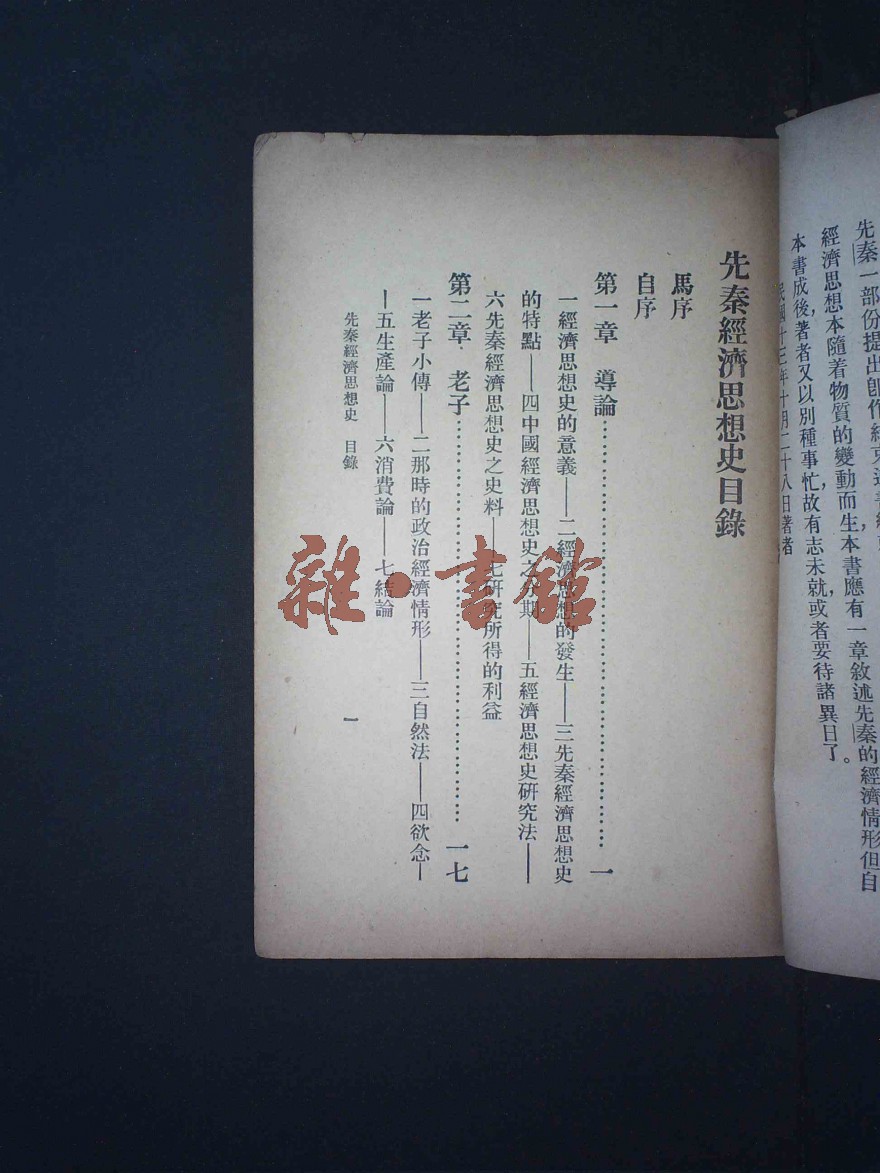 先秦一部份提出卽作結束
經濟思想本隨着物質的變動而生，本書應有一章敘述先秦的經濟情形但自
本書成後，著者又以別種事忙，故有志未就，或者要待諸異日了。
民國十三年十月二十八日著者
先秦經濟思想史目錄
馬序
自序
第一章　導論……………………一
一經濟思想史的意義——二經濟思想的發生——三先秦經濟思想史
的特點——四中國經濟思想史之分期——五經濟思想史研究法——
六先秦經濟思想史之史料——七研究所得的利益
第二章　老子……………………一七
一老子小傳——二那時的政治經濟情形——三自然法——四欲念—
—五生產論——六消費論——七結論
先秦經濟思想史　目錄
一
雜·書館